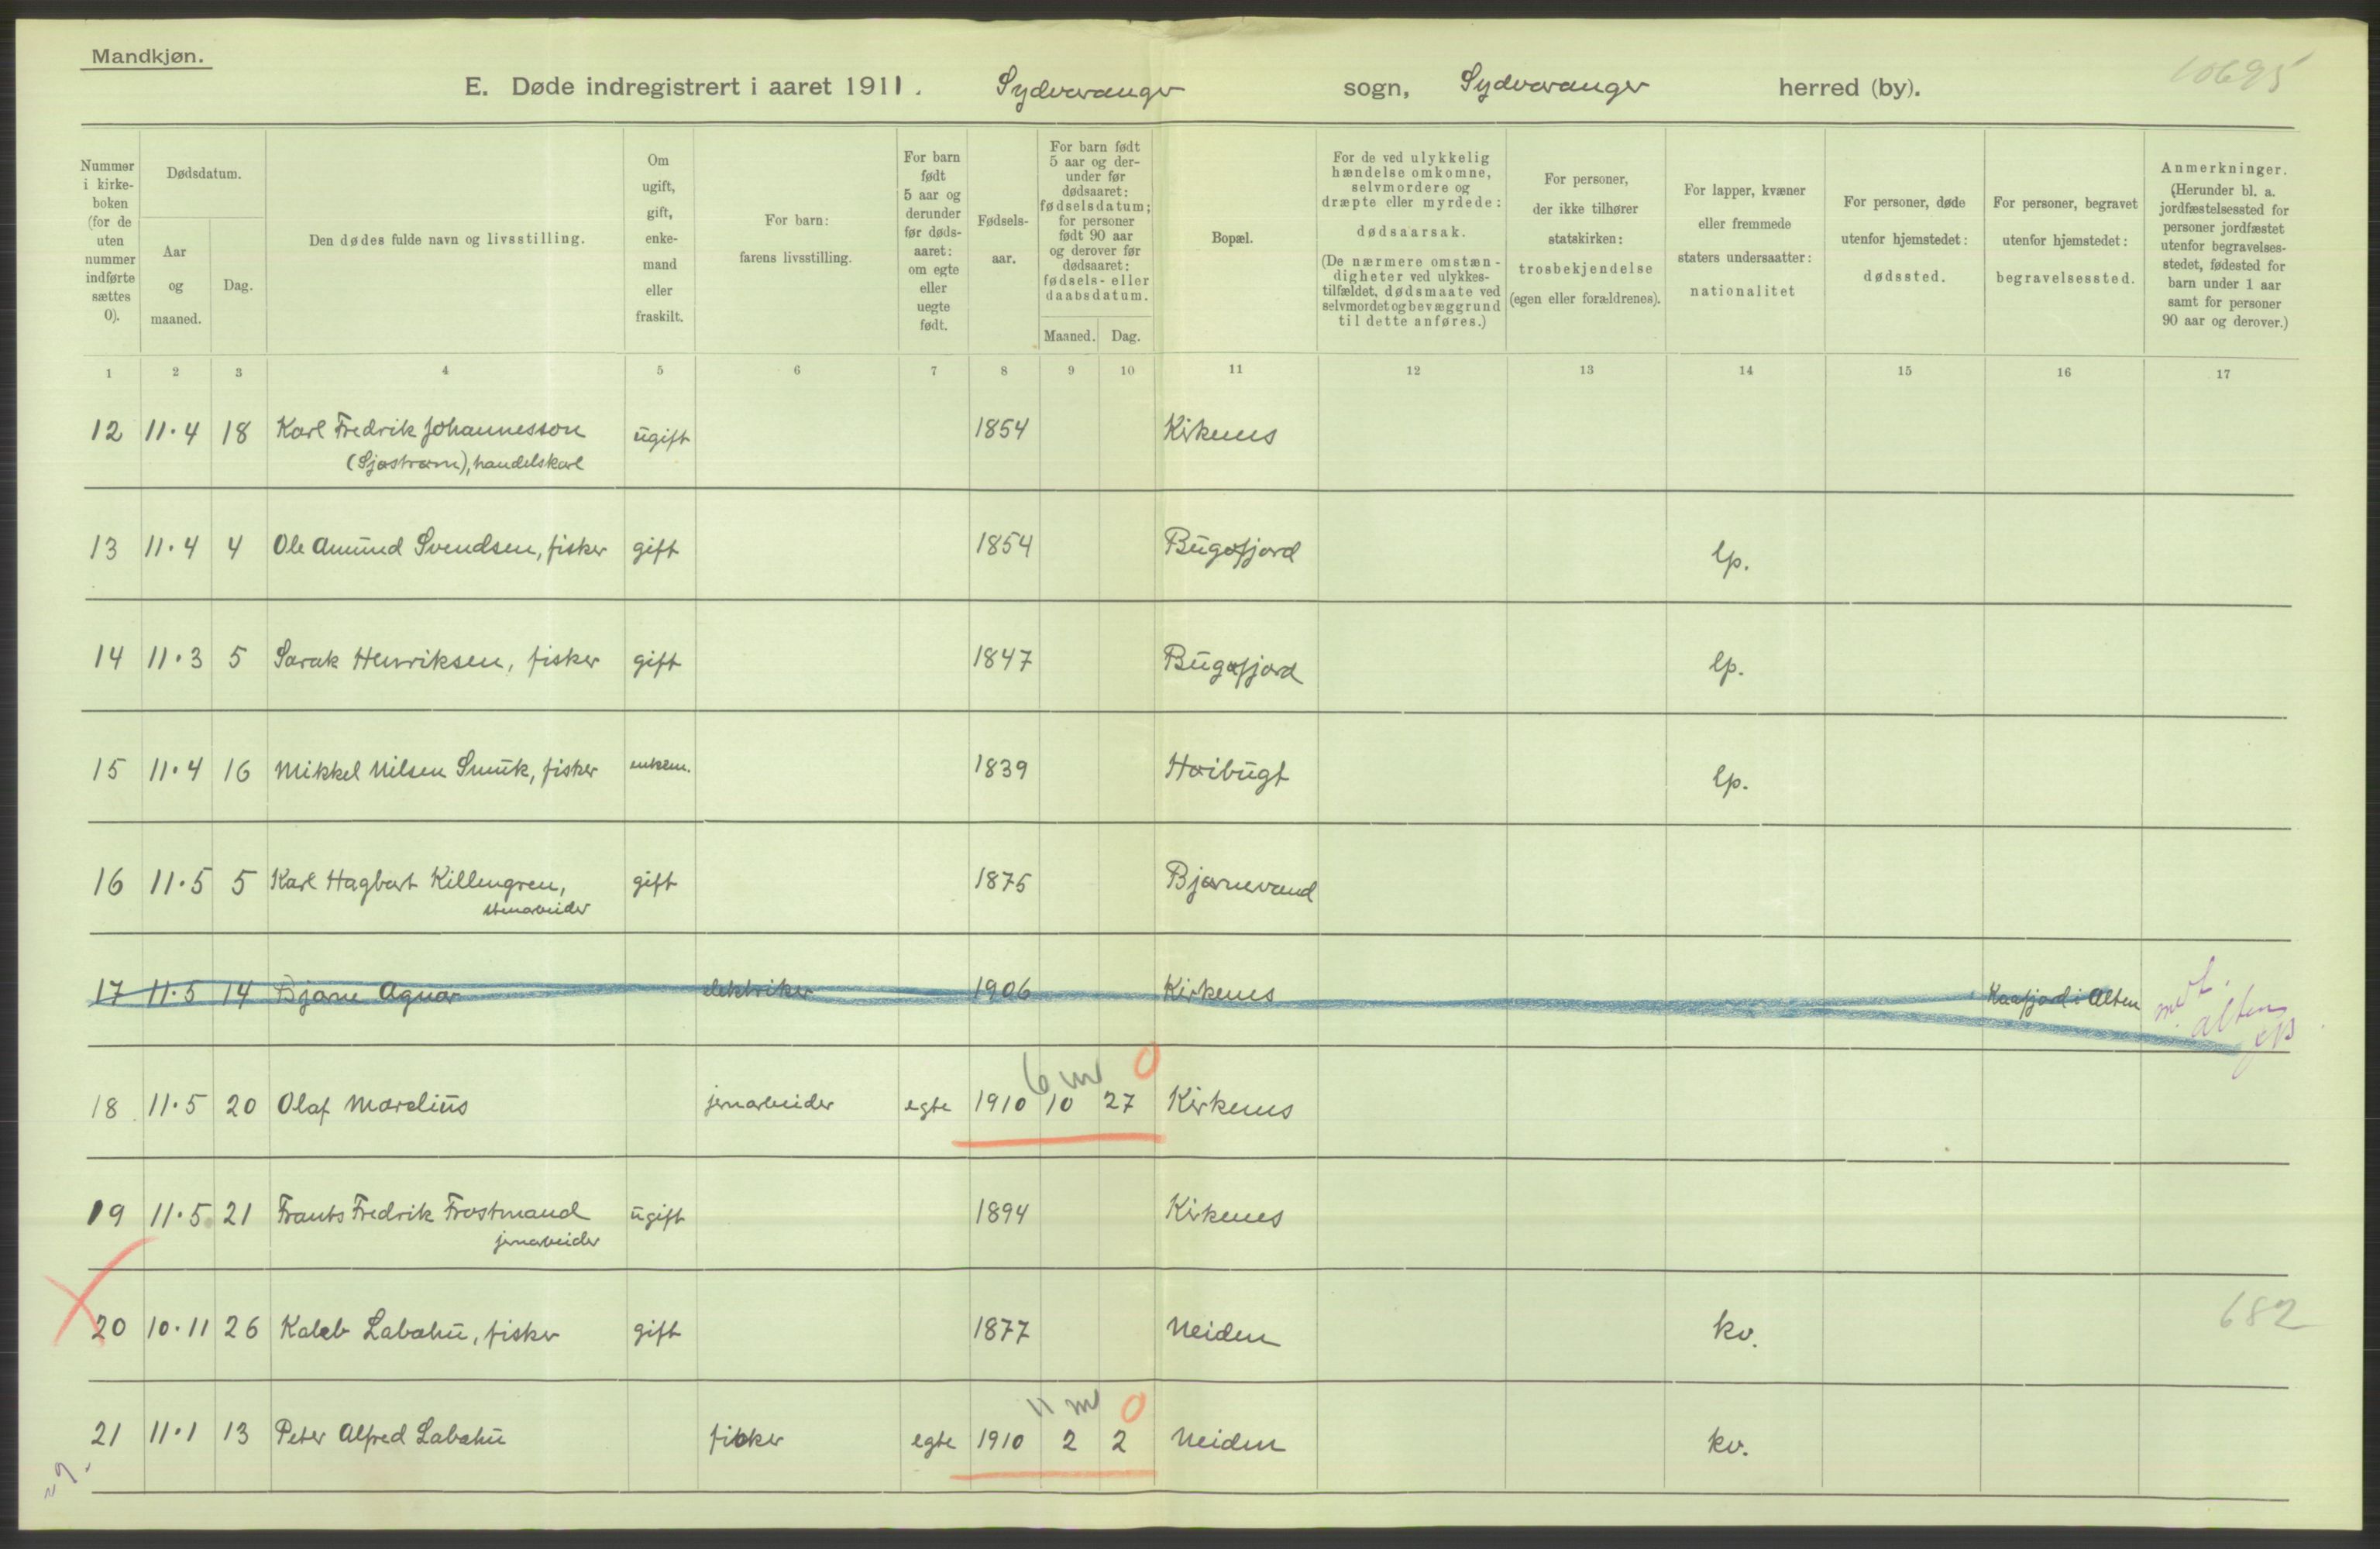 Mandkjøn.
10695
E. Døde indregistrert i aaret 1911. Sydvaranger sogn, Sydvaranger herred (by).
Nummer i kirke- boken (for de uten nummer indførte sættes 0).
Dødsdatum.
Aar og maaned.
Dag.
Den dødes fulde navn og livsstilling.
Om ugift, gift, enke- mand eller fraskilt.
For barn: farens livsstilling.
For barn født 5 aar og derunder før døds- aaret: om egte eller uegte født.
Fødsels- aar.
For barn født 5 aar og der- under før dødsaaret: fødselsdatum; for personer født 90 aar og derover før dødsaaret: fødsels- eller daabsdatum.
Maaned. Dag.
Bopæl.
For de ved ulykkelig hændelse omkomne, selvmordere og dræpte eller myrdede: dødsaarsak. (De nærmere omstæn- digheter ved ulykkes- tilfældet, dødsmaate ved selvmordet og bevæggrund til dette anføres.)
For personer, der ikke tilhører statskirken: trosbekjendelse (egen eller forældrenes).
For lapper, kvæner eller fremmede staters undersaatter: nationalitet
For personer, døde utenfor hjemstedet: dødssted.
For personer, begravet utenfor hjemstedet: begravelsessted.
Anmerkninger. (Herunder bl. a. jordfæstelsessted for personer jordfæstet utenfor begravelses- stedet, fødested for barn under 1 aar samt for personer 90 aar og derover.)
1 2 3 4 5 6 7 8 9 10 11 12 13 14 15 16 17
12 11.4 18 Karl Fredrik Johannesson ugift 1854 Kirkenes
(Sjøstrøm), handelskarl
13 11.4 4 Ole Amund Svendsen, fisker gift 1854 Bugøfjord lp.
14 11.3 5 Sarak Henriksen, fisker gift 1847 Bugøfjord lp.
15 11.4 16 Mikkel Nilsen Smuk, fisker enkem. 1839 Høibugt lp.
16 11.5 5 Karl Hagbart Killengren, gift 1875 Bjørnevand
stenarbeider
17 11.5 14 Bjarne Agnar elektriker 1906 Kirkenes Kaafjord i Alten
alten
6 m 0
18 11.5 20 Olaf Marelius jernarbeider egte 1910 10 27 Kirkenes
19 11.5 21 Frants Fredrik Frostmand ugift 1894 Kirkenes
jernarbeider
20 10.11 26 Kaleb Labahu, fisker gift 1877 Neiden kv. 682
11 m 0
21 11.1 13 Peter Alfred Labahu fisker egte 1910 2 2 Neiden kv.